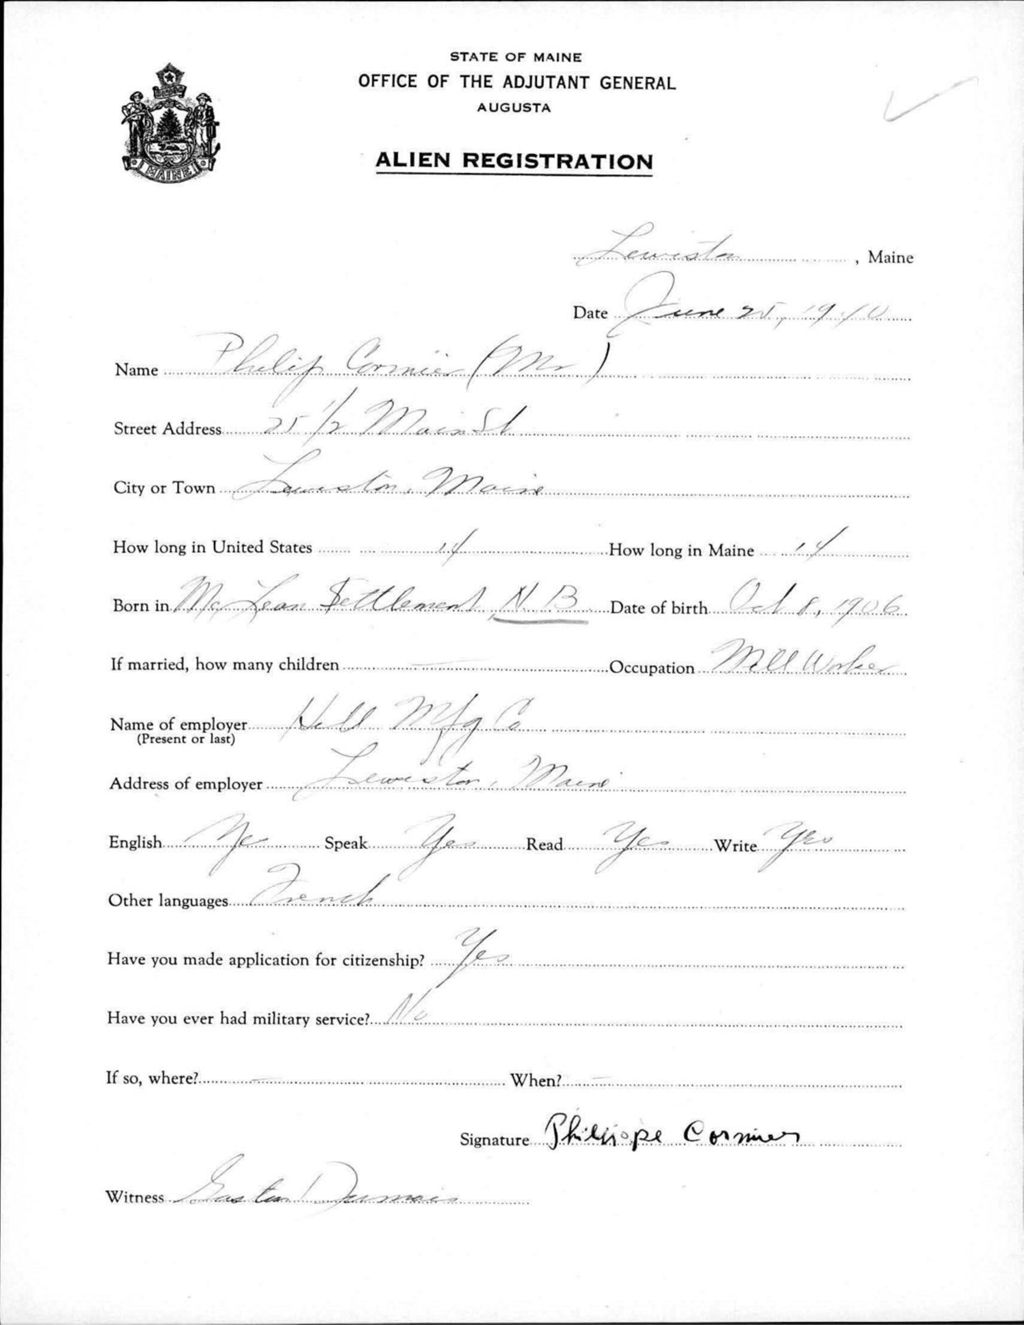 STATE OF MAINE
OFFICE OF THE ADJUTANT GENERAL
AUGUSTA
MAINE
ALIEN REGISTRATION
Lewiston, Maine
Date June 25, 1940
Name Philip Cormier (Mr)
Street Address 25 1/2 Main St
City or Town Lewiston, Maine
How long in United States 14 How long in Maine 14
Born in McLean Settlement N. B Date of birth Oct 8, 1906
If married, how many children — Occupation Mill Worker
Name of employer Hill Mfg Co
(Present or last)
Address of employer Lewiston, Maine
English Speak Yes Read Yes Write Yes
Other languages French
Have you made application for citizenship? Yes
Have you ever had military service? No
If so, where? — When? —
Signature Philippe Cormier
Witness Gaston Dumais